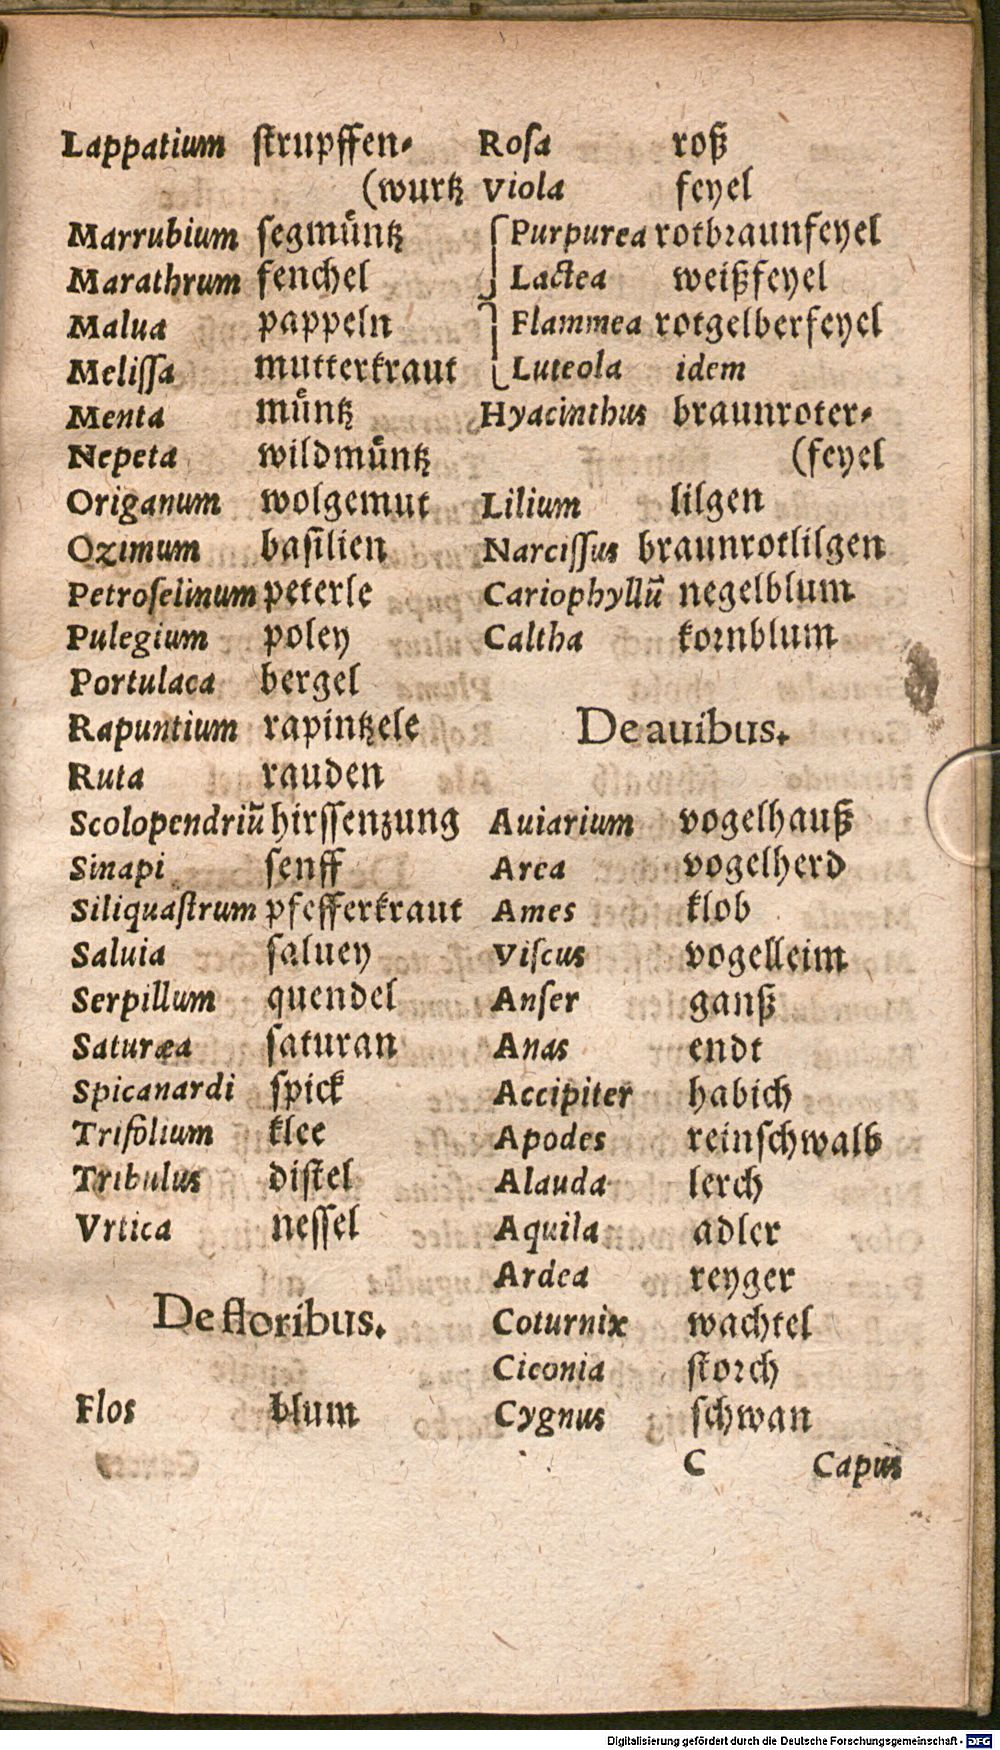 Lappatium ſtrupffen⸗
(wurtz
Marrubium ſegmuͤntz
Marathrum fenchel
Malua pappeln
Meliſſa mutterkraut
Menta muͤntz
Nepeta wildmuͤntz
Origanum wolgemut
Ozimum baſilien
Petroſelinum peterle
Pulegium poley
Portulaca bergel
Rapuntium rapintzele
Ruta rauden
Scolopendriũ hirſſenzung
Sinapi ſenff
Siliquaſtrum pfefferkraut
Saluia ſaluey
Serpillum quendel
Saturæa ſaturan
Spicanardi ſpick
Trifolium klee
Tribulus diſtel
Vrtica neſſel
De floribus.
Flos blum
Roſa roß
Viola feyel
Purpurea rotbraunfeyel
Lactea weißfeyel
Flammea rotgelberfeyel
Luteola idem
Hyacinthus braunroter⸗
(feyel
Lilium lilgen
Narciſſus braunrotlilgen
Cariophyllũ negelblum
Caltha kornblum
De auibus.
Auiarium vogelhauß
Area vogelherd
Ames klob
Viſcus vogelleim
Anſer ganß
Anas endt
Accipiter habich
Apodes reinſchwalb
Alauda lerch
Aquila adler
Ardea reyger
Coturnix wachtel
Ciconia ſtorch
Cygnus ſchwan
C Capus
Digitalisierung gefördert durch die Deutsche Forschungsgemeinschaft - DFG